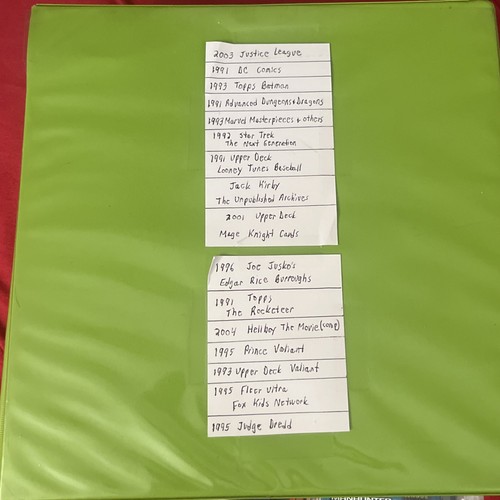 2003 Justice League
1991 DC Comics
1993 Topps Batman
1991 Advanced Dungeons & Dragons
1993 Marvel Masterpieces & others
1992 Star Trek
The Next Generation
1991 Upper Deck
Looney Tunes Baseball
Jack Kirby
The Unpublished Archives
2001 Upper Deck
Mage Knight Cards
1996 Joe Jusko's
Edgar Rice Burroughs
1991 Topps
The Rocketeer
2004 Hellboy The Movie
1995 Prince Valiant
1993 Upper Deck Valiant
1995 Fleer Ultra
Fox Kids Network
1995 Judge Dredd
MANHUNTER